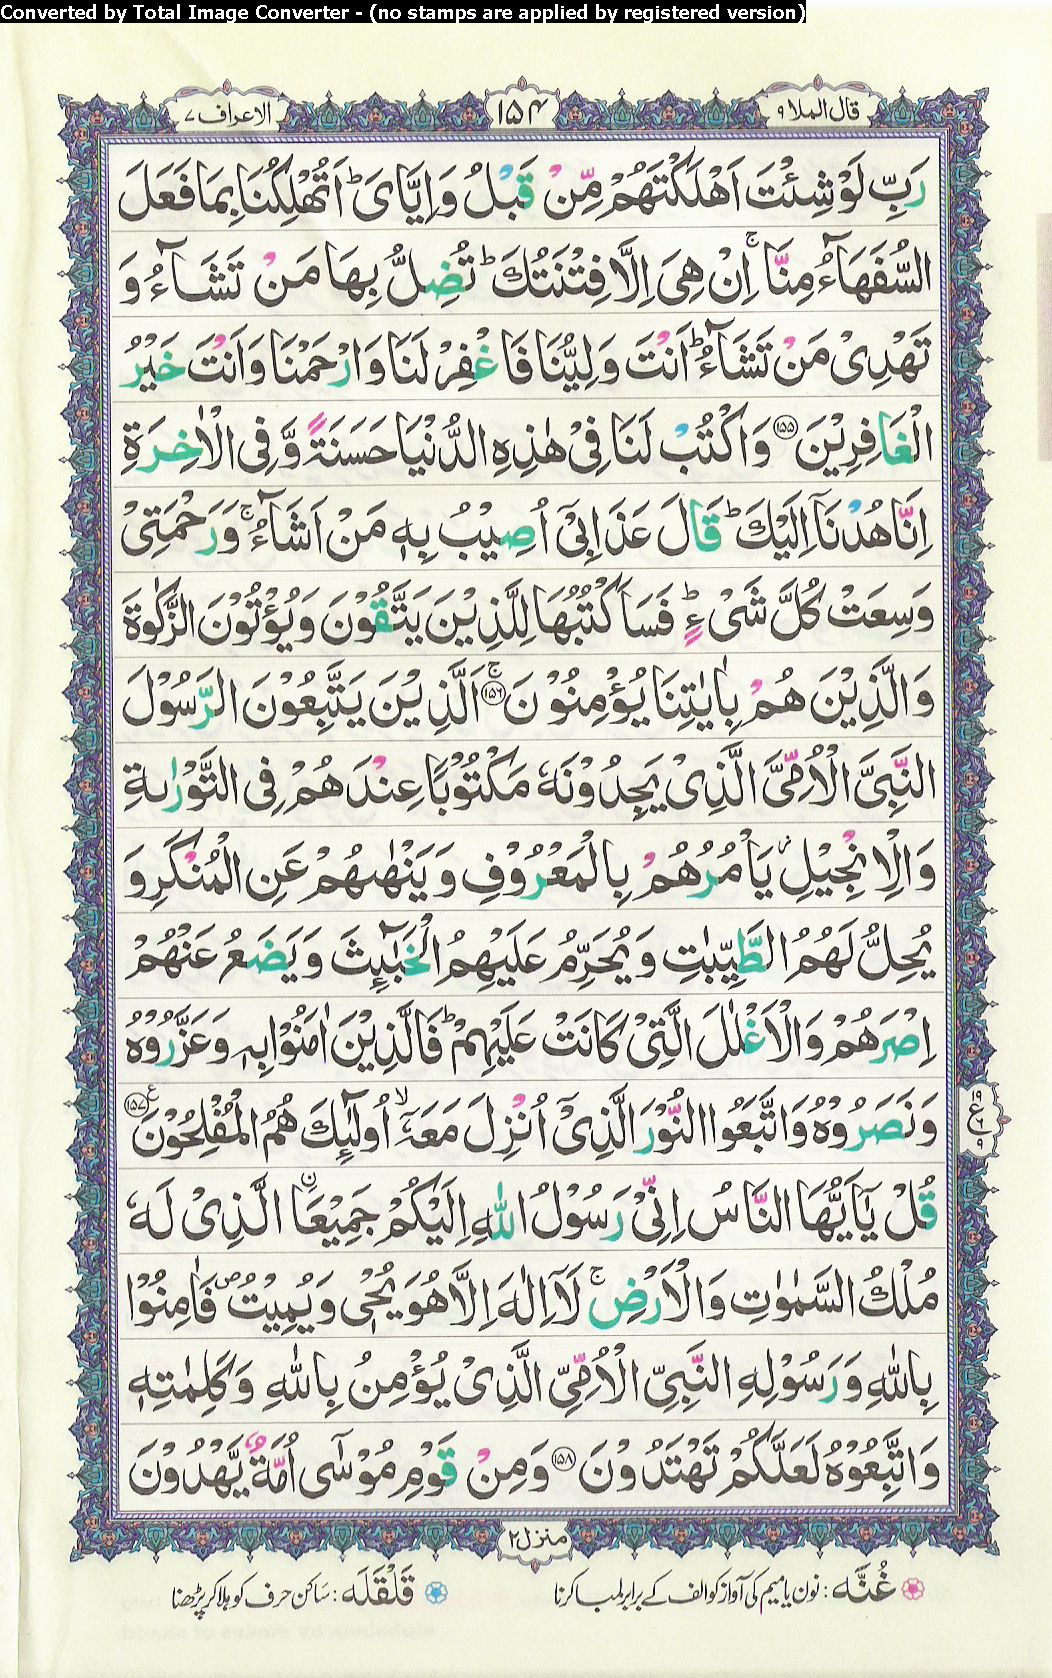 Converted by Total Image Converter - (no stamps are applied by registered version)
قال الملا ۹
۱۵۴
الاعراف ۷
رَبِّ لَوْ شِئْتَ اَهْلَكْتَهُمْ مِّنْ قَبْلُ وَاِيَّايَ ؕ اَتُهْلِكُنَا بِمَا فَعَلَ
السُّفَهَآءُ مِنَّا ۚ اِنْ هِيَ اِلَّا فِتْنَتُكَ ؕ تُضِلُّ بِهَا مَنْ تَشَآءُ وَ
تَهْدِيْ مَنْ تَشَآءُ ؕ اَنْتَ وَلِيُّنَا فَاغْفِرْ لَنَا وَارْحَمْنَا وَاَنْتَ خَيْرُ
الْغَافِرِيْنَ ۝۱۵۵ وَاكْتُبْ لَنَا فِيْ هٰذِهِ الدُّنْيَا حَسَنَةً وَّفِي الْاٰخِرَةِ
اِنَّا هُدْنَاۤ اِلَيْكَ ؕ قَالَ عَذَابِيْۤ اُصِيْبُ بِهٖ مَنْ اَشَآءُ ۚ وَرَحْمَتِيْ
وَسِعَتْ كُلَّ شَيْءٍ ؕ فَسَاَكْتُبُهَا لِلَّذِيْنَ يَتَّقُوْنَ وَيُؤْتُوْنَ الزَّكٰوةَ
وَالَّذِيْنَ هُمْ بِاٰيٰتِنَا يُؤْمِنُوْنَ ۝۱۵۶ۚ اَلَّذِيْنَ يَتَّبِعُوْنَ الرَّسُوْلَ
النَّبِيَّ الْاُمِّيَّ الَّذِيْ يَجِدُوْنَهٗ مَكْتُوْبًا عِنْدَهُمْ فِي التَّوْرٰىةِ
وَالْاِنْجِيْلِ ؗ يَاْمُرُهُمْ بِالْمَعْرُوْفِ وَيَنْهٰىهُمْ عَنِ الْمُنْكَرِ وَ
يُحِلُّ لَهُمُ الطَّيِّبٰتِ وَيُحَرِّمُ عَلَيْهِمُ الْخَبٰٓئِثَ وَيَضَعُ عَنْهُمْ
اِصْرَهُمْ وَالْاَغْلٰلَ الَّتِيْ كَانَتْ عَلَيْهِمْ ؕ فَالَّذِيْنَ اٰمَنُوْا بِهٖ وَعَزَّرُوْهُ
وَنَصَرُوْهُ وَاتَّبَعُوا النُّوْرَ الَّذِيْۤ اُنْزِلَ مَعَهٗۤ ۙ اُولٰٓئِكَ هُمُ الْمُفْلِحُوْنَ ۝۱۵۷ع
۱۹ ع ۹
قُلْ يٰۤاَيُّهَا النَّاسُ اِنِّيْ رَسُوْلُ اللّٰهِ اِلَيْكُمْ جَمِيْعًا ۨ الَّذِيْ لَهٗ
مُلْكُ السَّمٰوٰتِ وَالْاَرْضِ ۚ لَاۤ اِلٰهَ اِلَّا هُوَ يُحْيٖ وَيُمِيْتُ ۪ فَاٰمِنُوْا
بِاللّٰهِ وَرَسُوْلِهِ النَّبِيِّ الْاُمِّيِّ الَّذِيْ يُؤْمِنُ بِاللّٰهِ وَكَلِمٰتِهٖ
وَاتَّبِعُوْهُ لَعَلَّكُمْ تَهْتَدُوْنَ ۝۱۵۸ وَمِنْ قَوْمِ مُوْسٰۤى اُمَّةٌ يَّهْدُوْنَ
منزل ۲
غُنَّه : نون یا میم کی آواز کو الف کے برابر لمبا کرنا
قَلْقَلَه : ساکن حرف کو ہلا کر پڑھنا